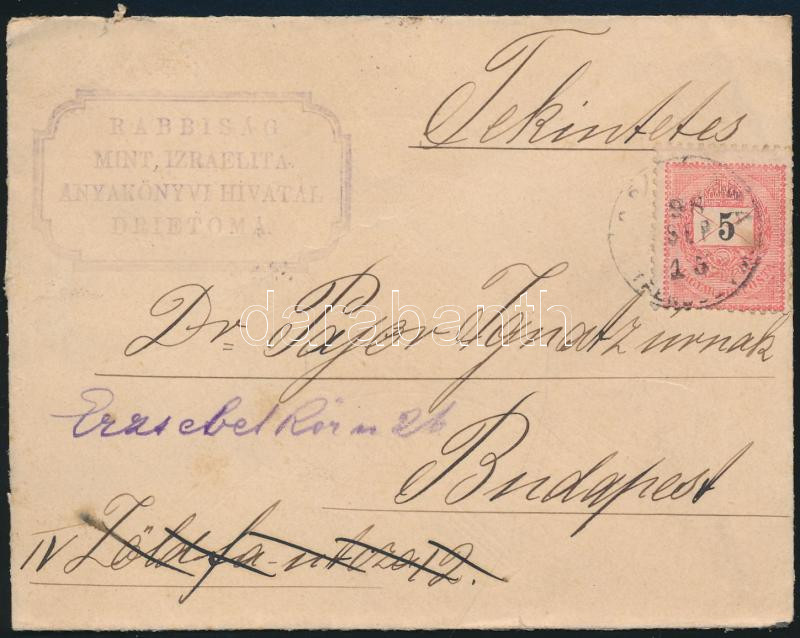 RABBISÁG
MINT, IZRAELITA.
ANYAKÖNYVI HIVATAL
DRIETOMA.
Tekintetes
5
SEP
15
Dr. Pajor Ignatz urnak
darabanth
Erzsebet Kör u 26
Budapest
IV Zöldfa-utcza 12.